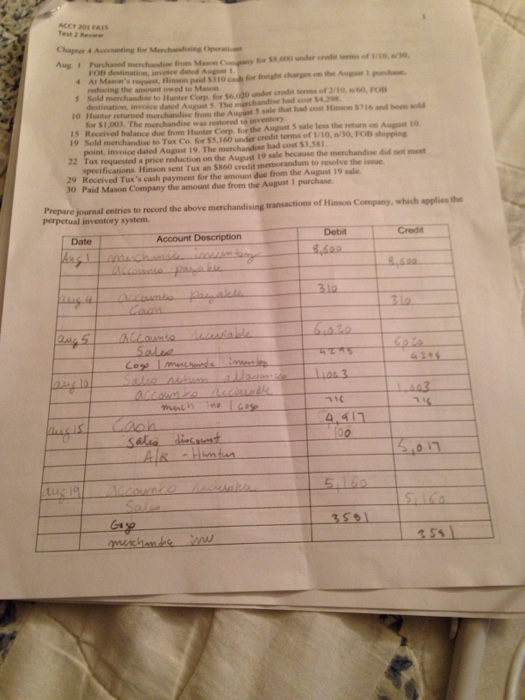 ACCT 201 FA15
Test 2 Review
1
Chapter 4 Accounting for Merchandising Operations
Aug. 1 Purchased merchandise from Mason Company for $8,600 under credit terms of 1/10, n/30,
FOB destination, invoice dated August 1.
4 At Mason's request, Hinson paid $310 cash for freight charges on the August 1 purchase,
reducing the amount owed to Mason.
5 Sold merchandise to Hunter Corp. for $6,020 under credit terms of 2/10, n/60, FOB
destination, invoice dated August 5. The merchandise had cost $4,298.
10 Hunter returned merchandise from the August 5 sale that had cost Hinson $716 and been sold
for $1,003. The merchandise was restored to inventory.
15 Received balance due from Hunter Corp. for the August 5 sale less the return on August 10.
19 Sold merchandise to Tux Co. for $5,160 under credit terms of 1/10, n/30, FOB shipping
point, invoice dated August 19. The merchandise had cost $3,581.
22 Tux requested a price reduction on the August 19 sale because the merchandise did not meet
specifications. Hinson sent Tux an $860 credit memorandum to resolve the issue.
29 Received Tux's cash payment for the amount due from the August 19 sale.
30 Paid Mason Company the amount due from the August 1 purchase.
Prepare journal entries to record the above merchandising transactions of Hinson Company, which applies the
perpetual inventory system.
Date Account Description Debit Credit
Aug 1 8,600
accounts payable 8,600
aug 4 accounts payable 310
Cash 310
aug 5 accounts 6,020
Sales 6020
Cogs / inventory 4298 4298
aug 10 Sales return allowance 1,003
accounts 1,003
merch inv / Cogs 716 716
aug 15 Cash 4,917
sales discount 100
A/R - Hunter 5,017
aug 19 accounts 5,160
Sales 5,160
Cogs 3581
inv 3581